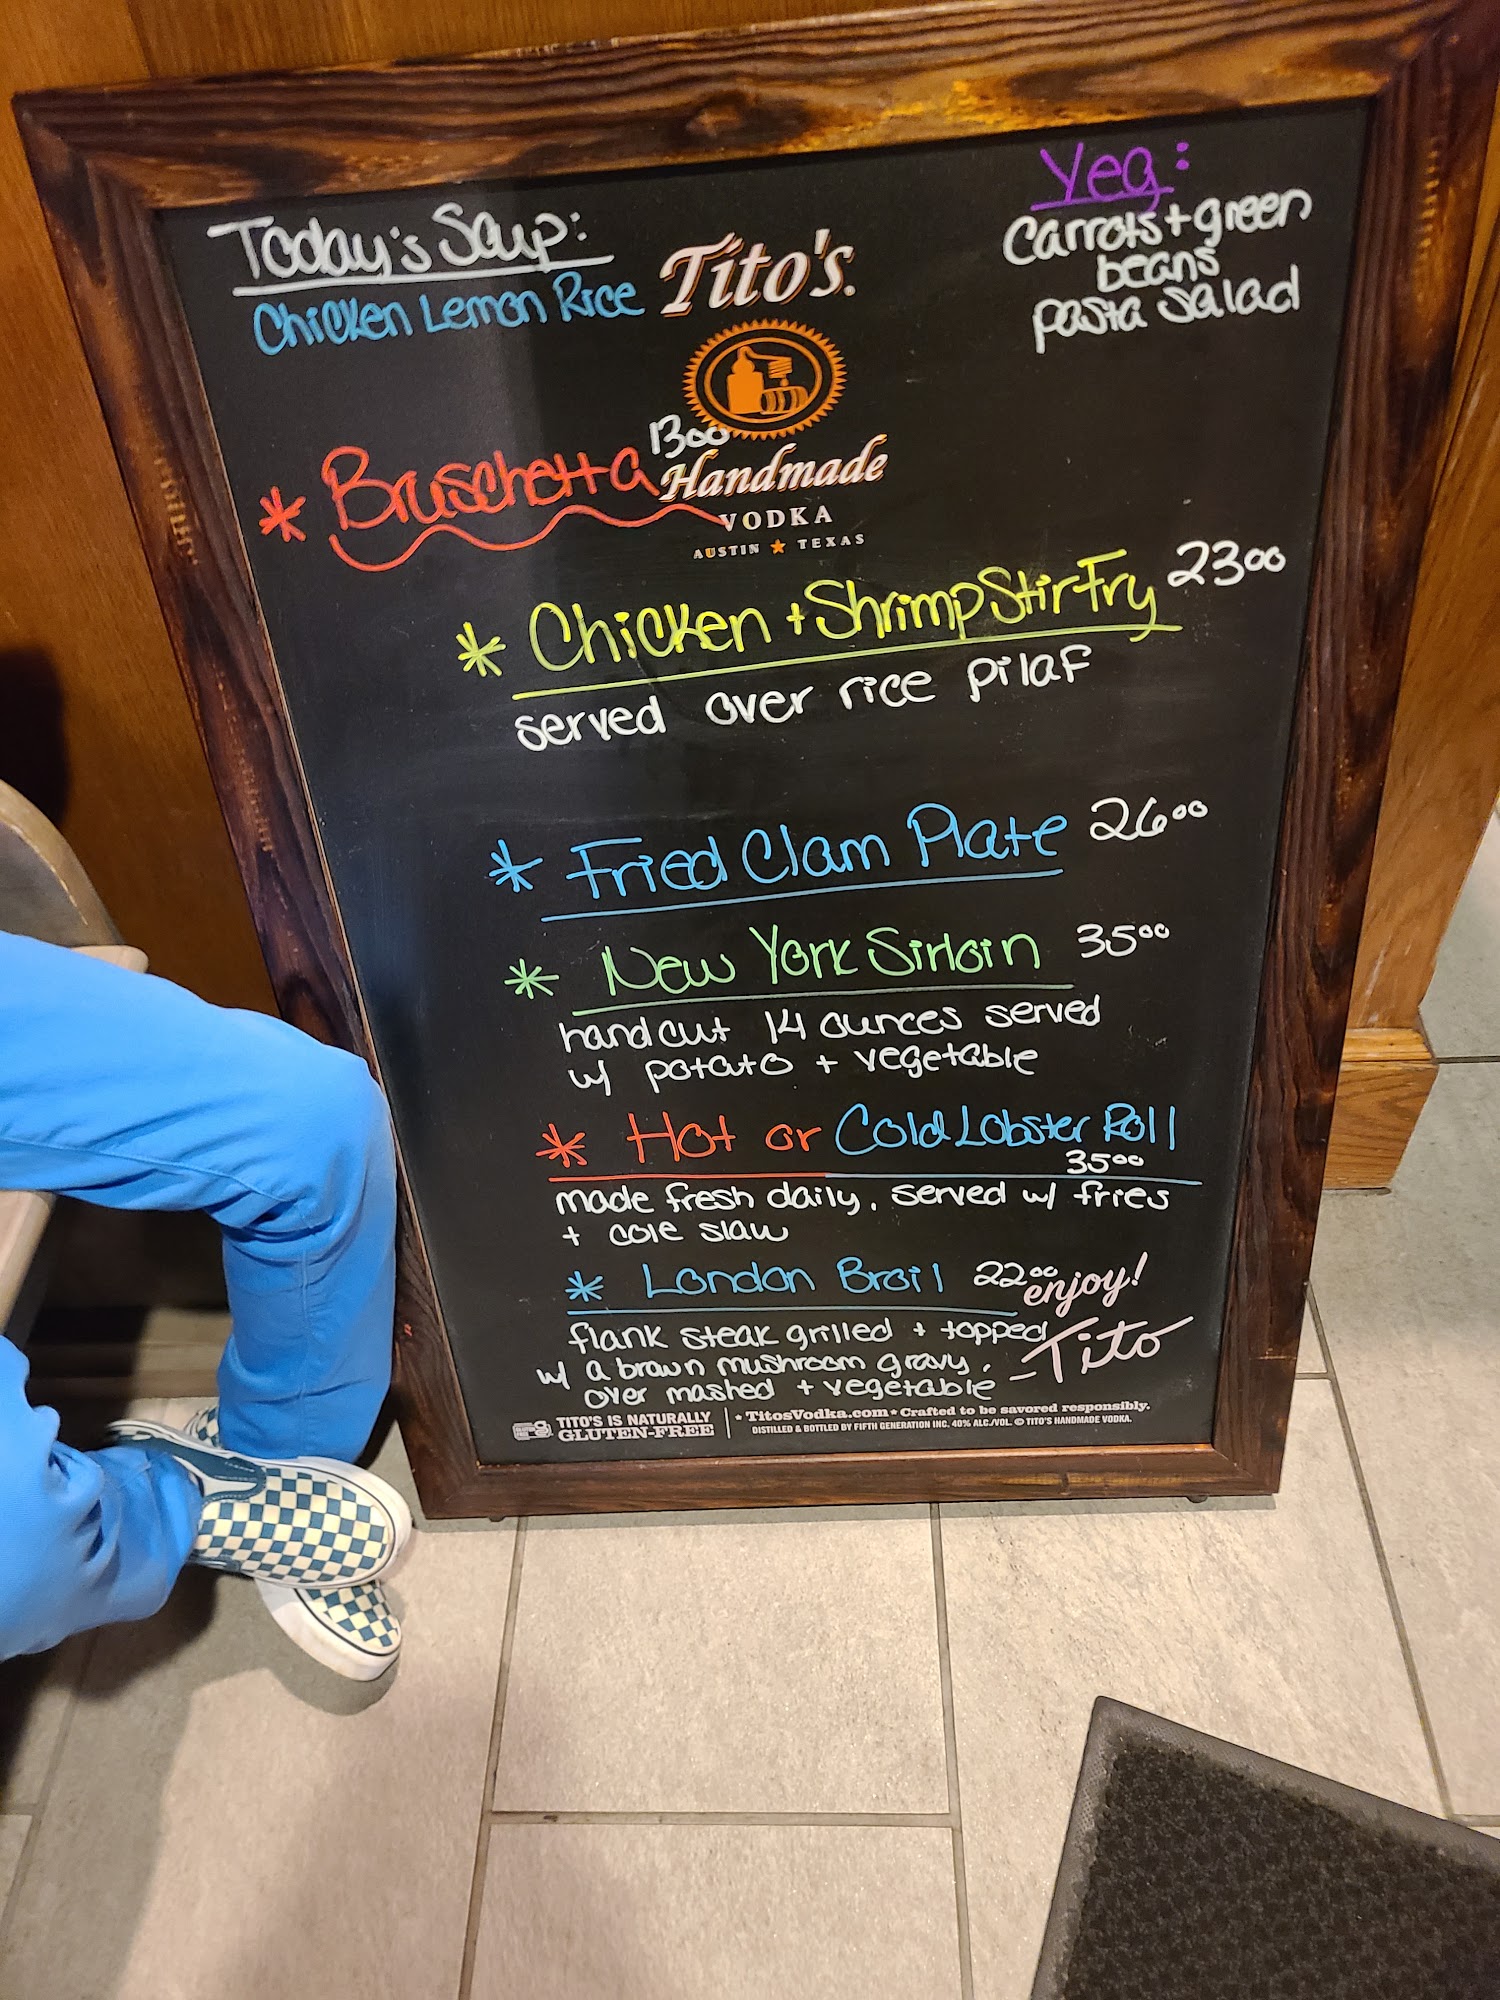 Today's Soup:
Chicken Lemon Rice
Veg:
Carrots + green
beans
pasta salad
Tito's.
Handmade
VODKA
AUSTIN ★ TEXAS
* Bruschetta 1300
* Chicken + Shrimp Stir Fry 2300
served over rice pilaf
* Fried Clam Plate 2600
* New York Sirloin 3500
hand cut 14 ounces served
w/ potato + vegetable
* Hot or Cold Lobster Roll
3500
made fresh daily, served w/ fries
+ cole slaw
* London Broil 2200
enjoy!
flank steak grilled + topped
w/ a brown mushroom gravy,
over mashed + vegetable
- Tito
TITO'S IS NATURALLY
GLUTEN-FREE
* TitosVodka.com * Crafted to be savored responsibly.
DISTILLED & BOTTLED BY FIFTH GENERATION INC. 40% ALC./VOL. © TITO'S HANDMADE VODKA.